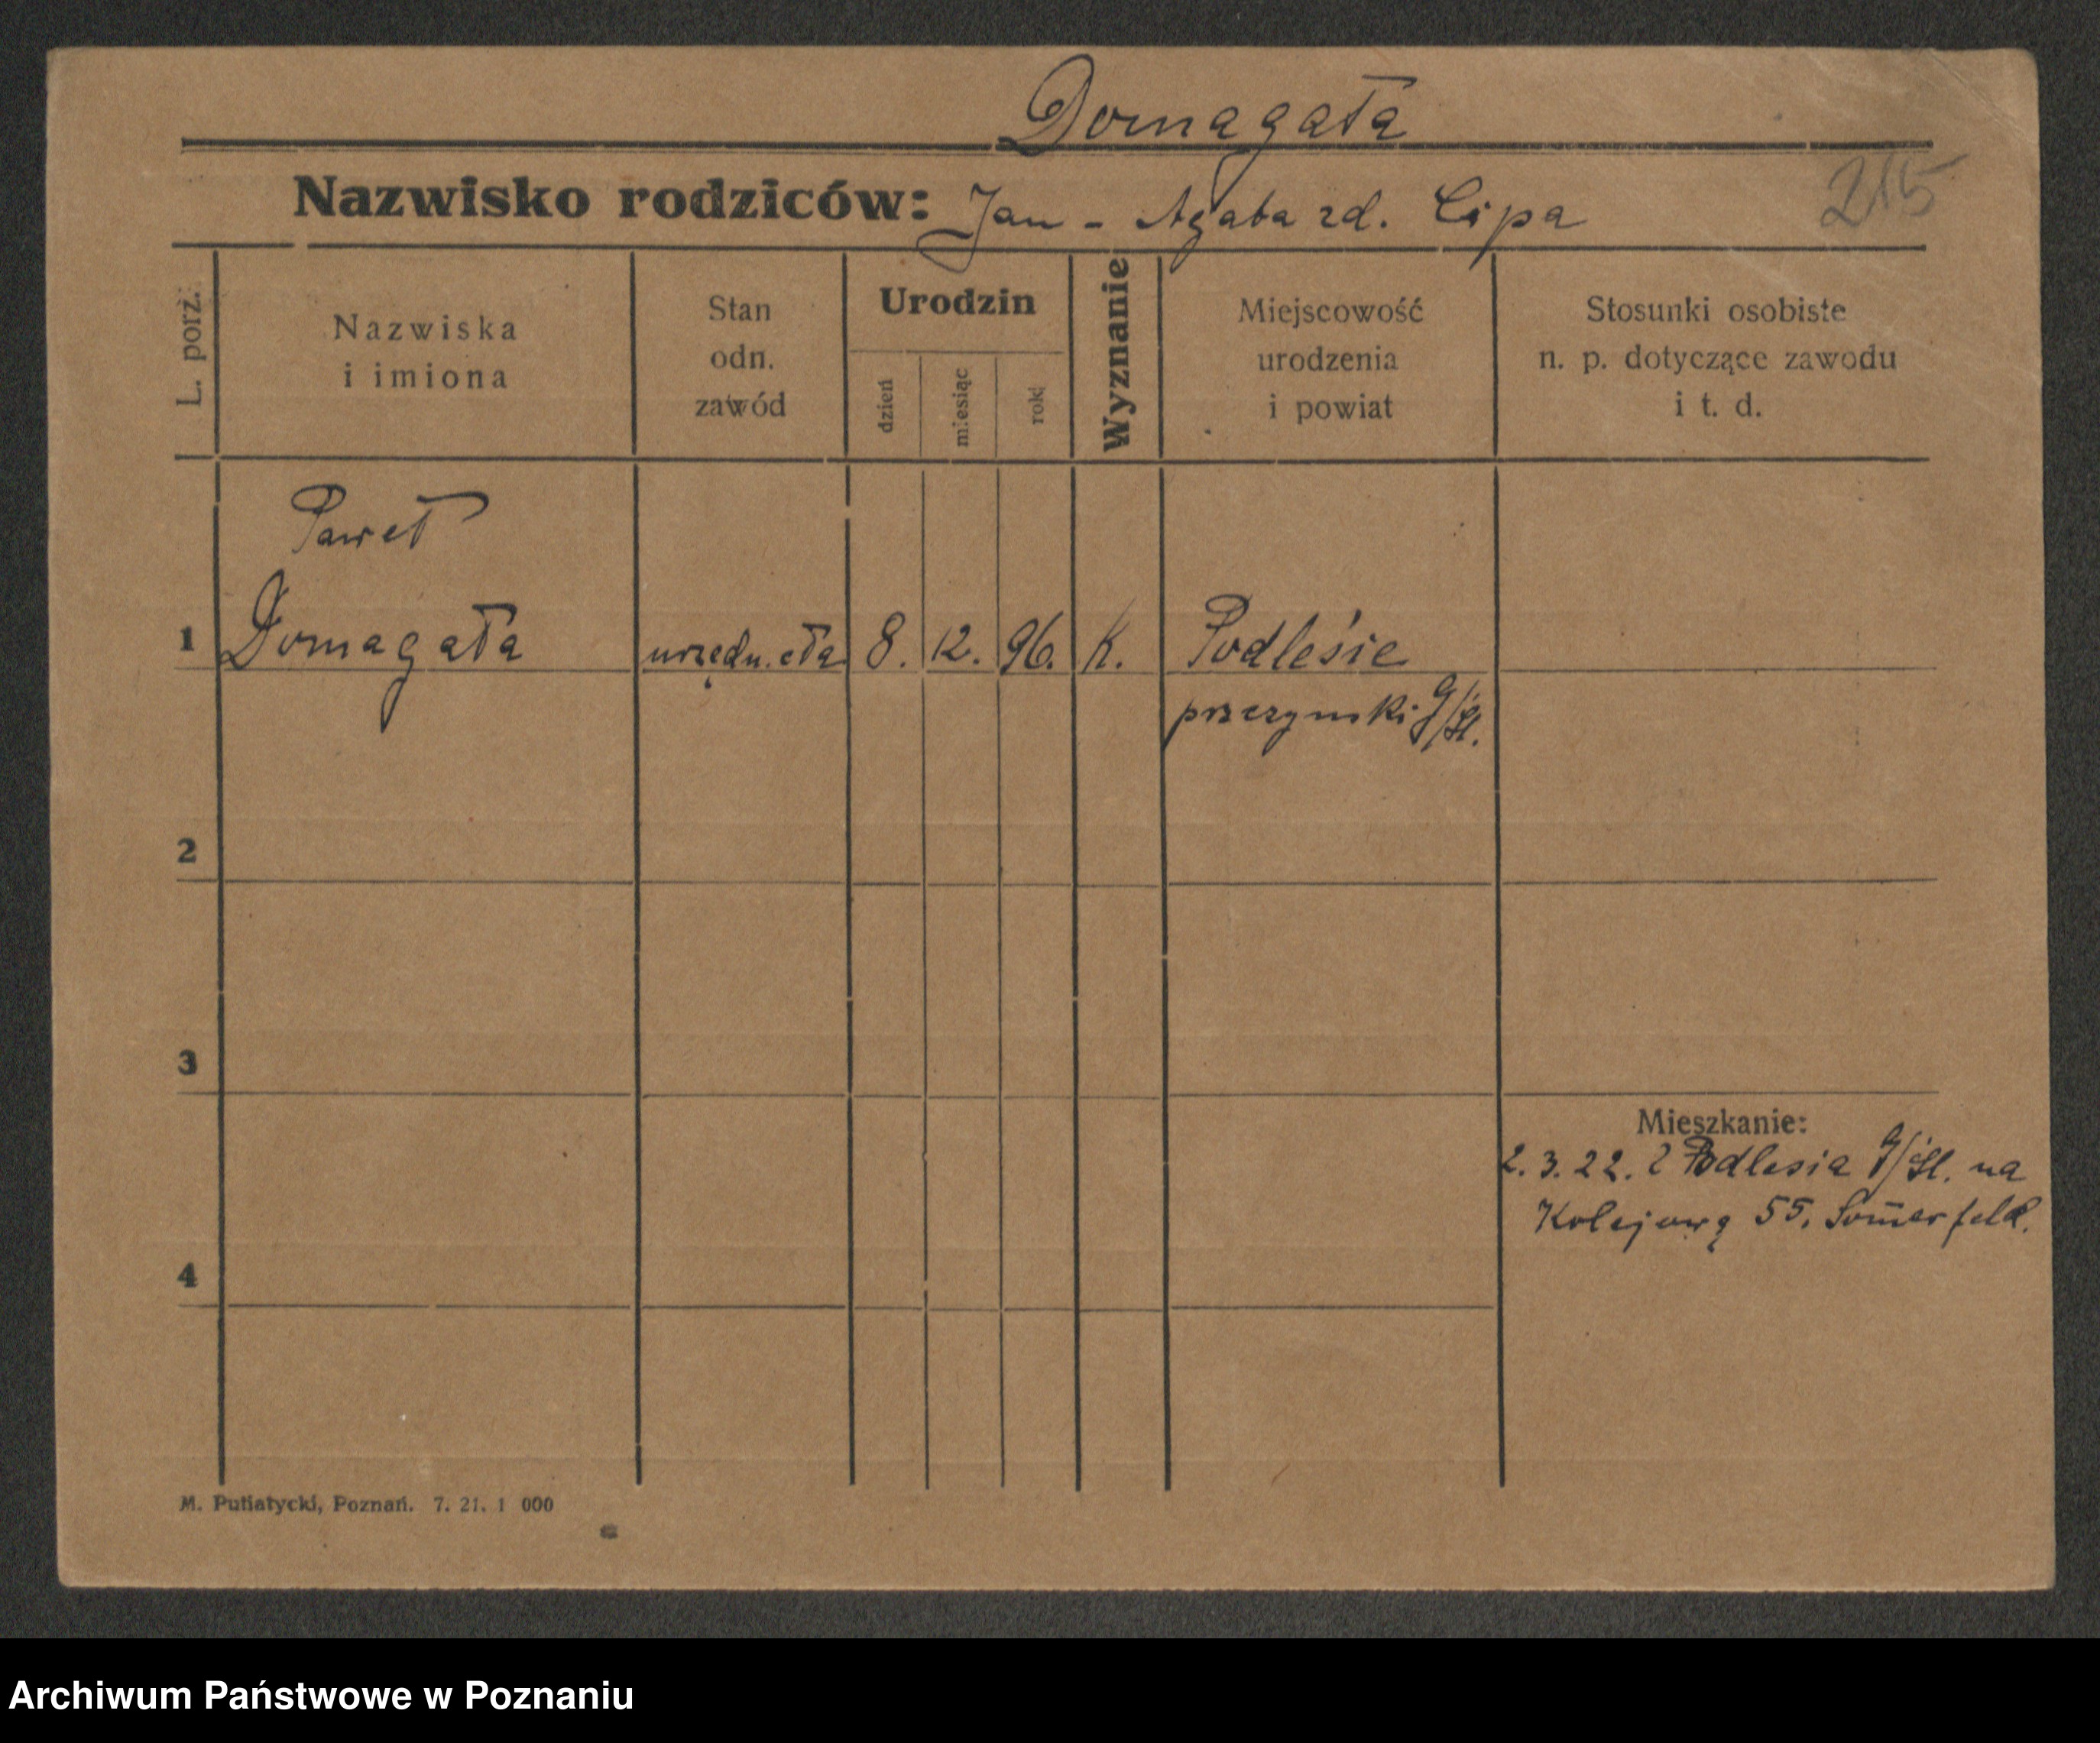 Domagała
215
Nazwisko rodziców: Jan - Agata zd. Lipa
L. porz.
Nazwiska
i imiona
Stan
odn.
zawód
Urodzin
dzień
miesiąc
rok
Wyznanie
Miejscowość
urodzenia
i powiat
Stosunki osobiste
n. p. dotyczące zawodu
i t. d.
Paweł
1 Domagała urzędn. cła 8. 12. 96. K. Podlesie
pszczynski G/Śl.
2
3
Mieszkanie:
2.3.22. z Podlesia G/Śl. na
Kolejową 55. Som̄erfeld.
4
M. Putiatycki, Poznań. 7. 21. 1 000
Archiwum Państwowe w Poznaniu